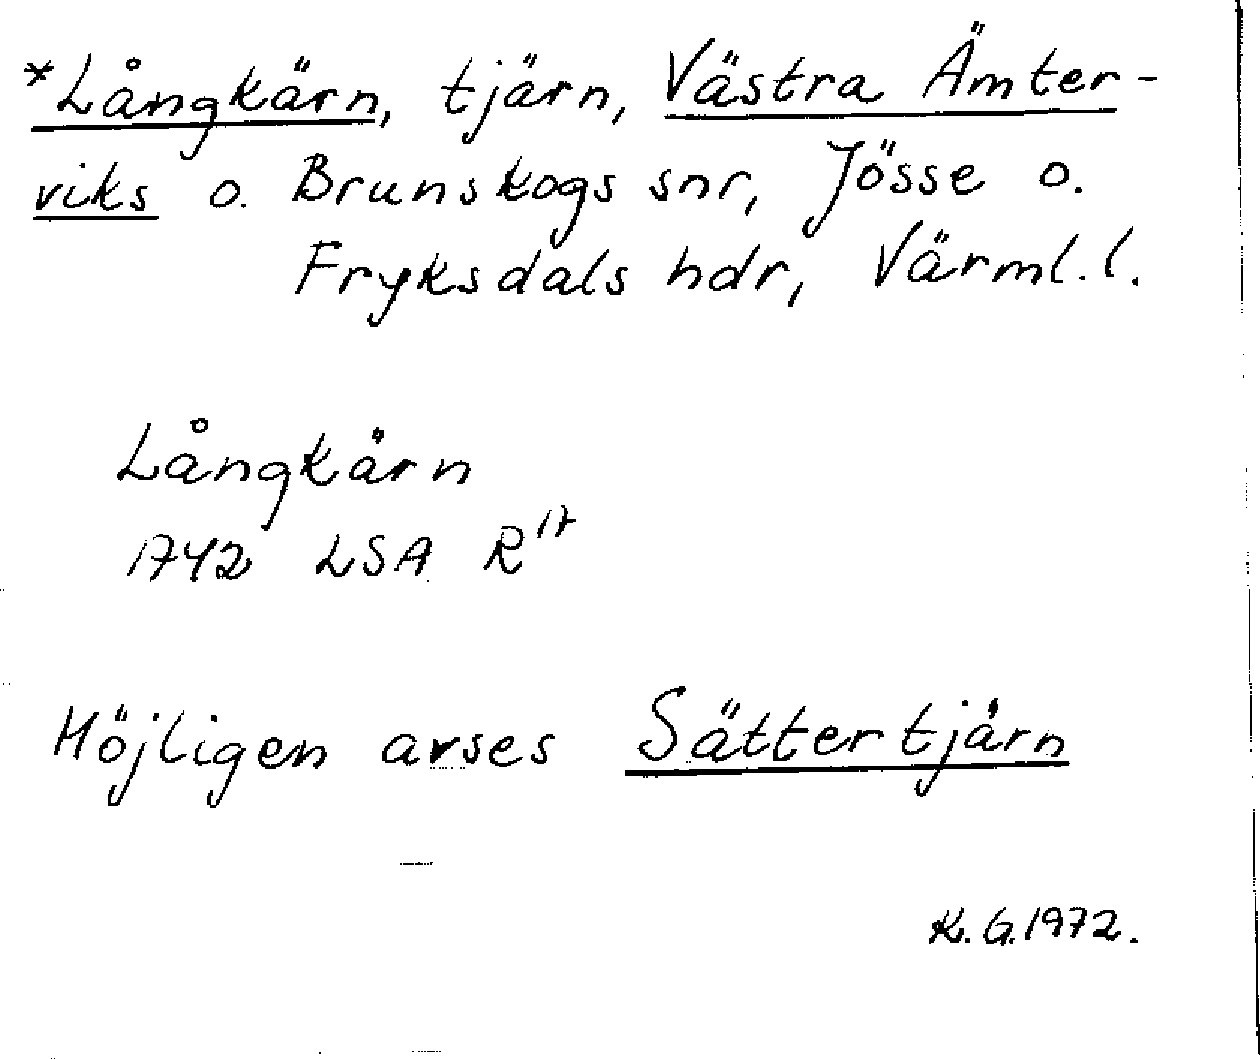 *Långkärn, tjärn, Västra Ämter-
viks o. Brunskogs snr, Jösse o.
Fryksdals hdr, Värml. l.
Långkårn
1742 LSA R 17
Möjligen avses Sättertjärn
K. G. 1972.